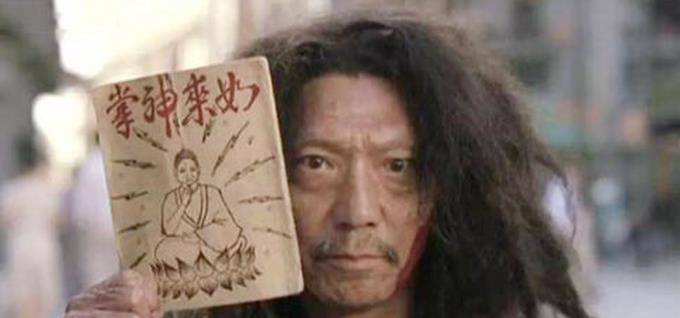 如來神掌